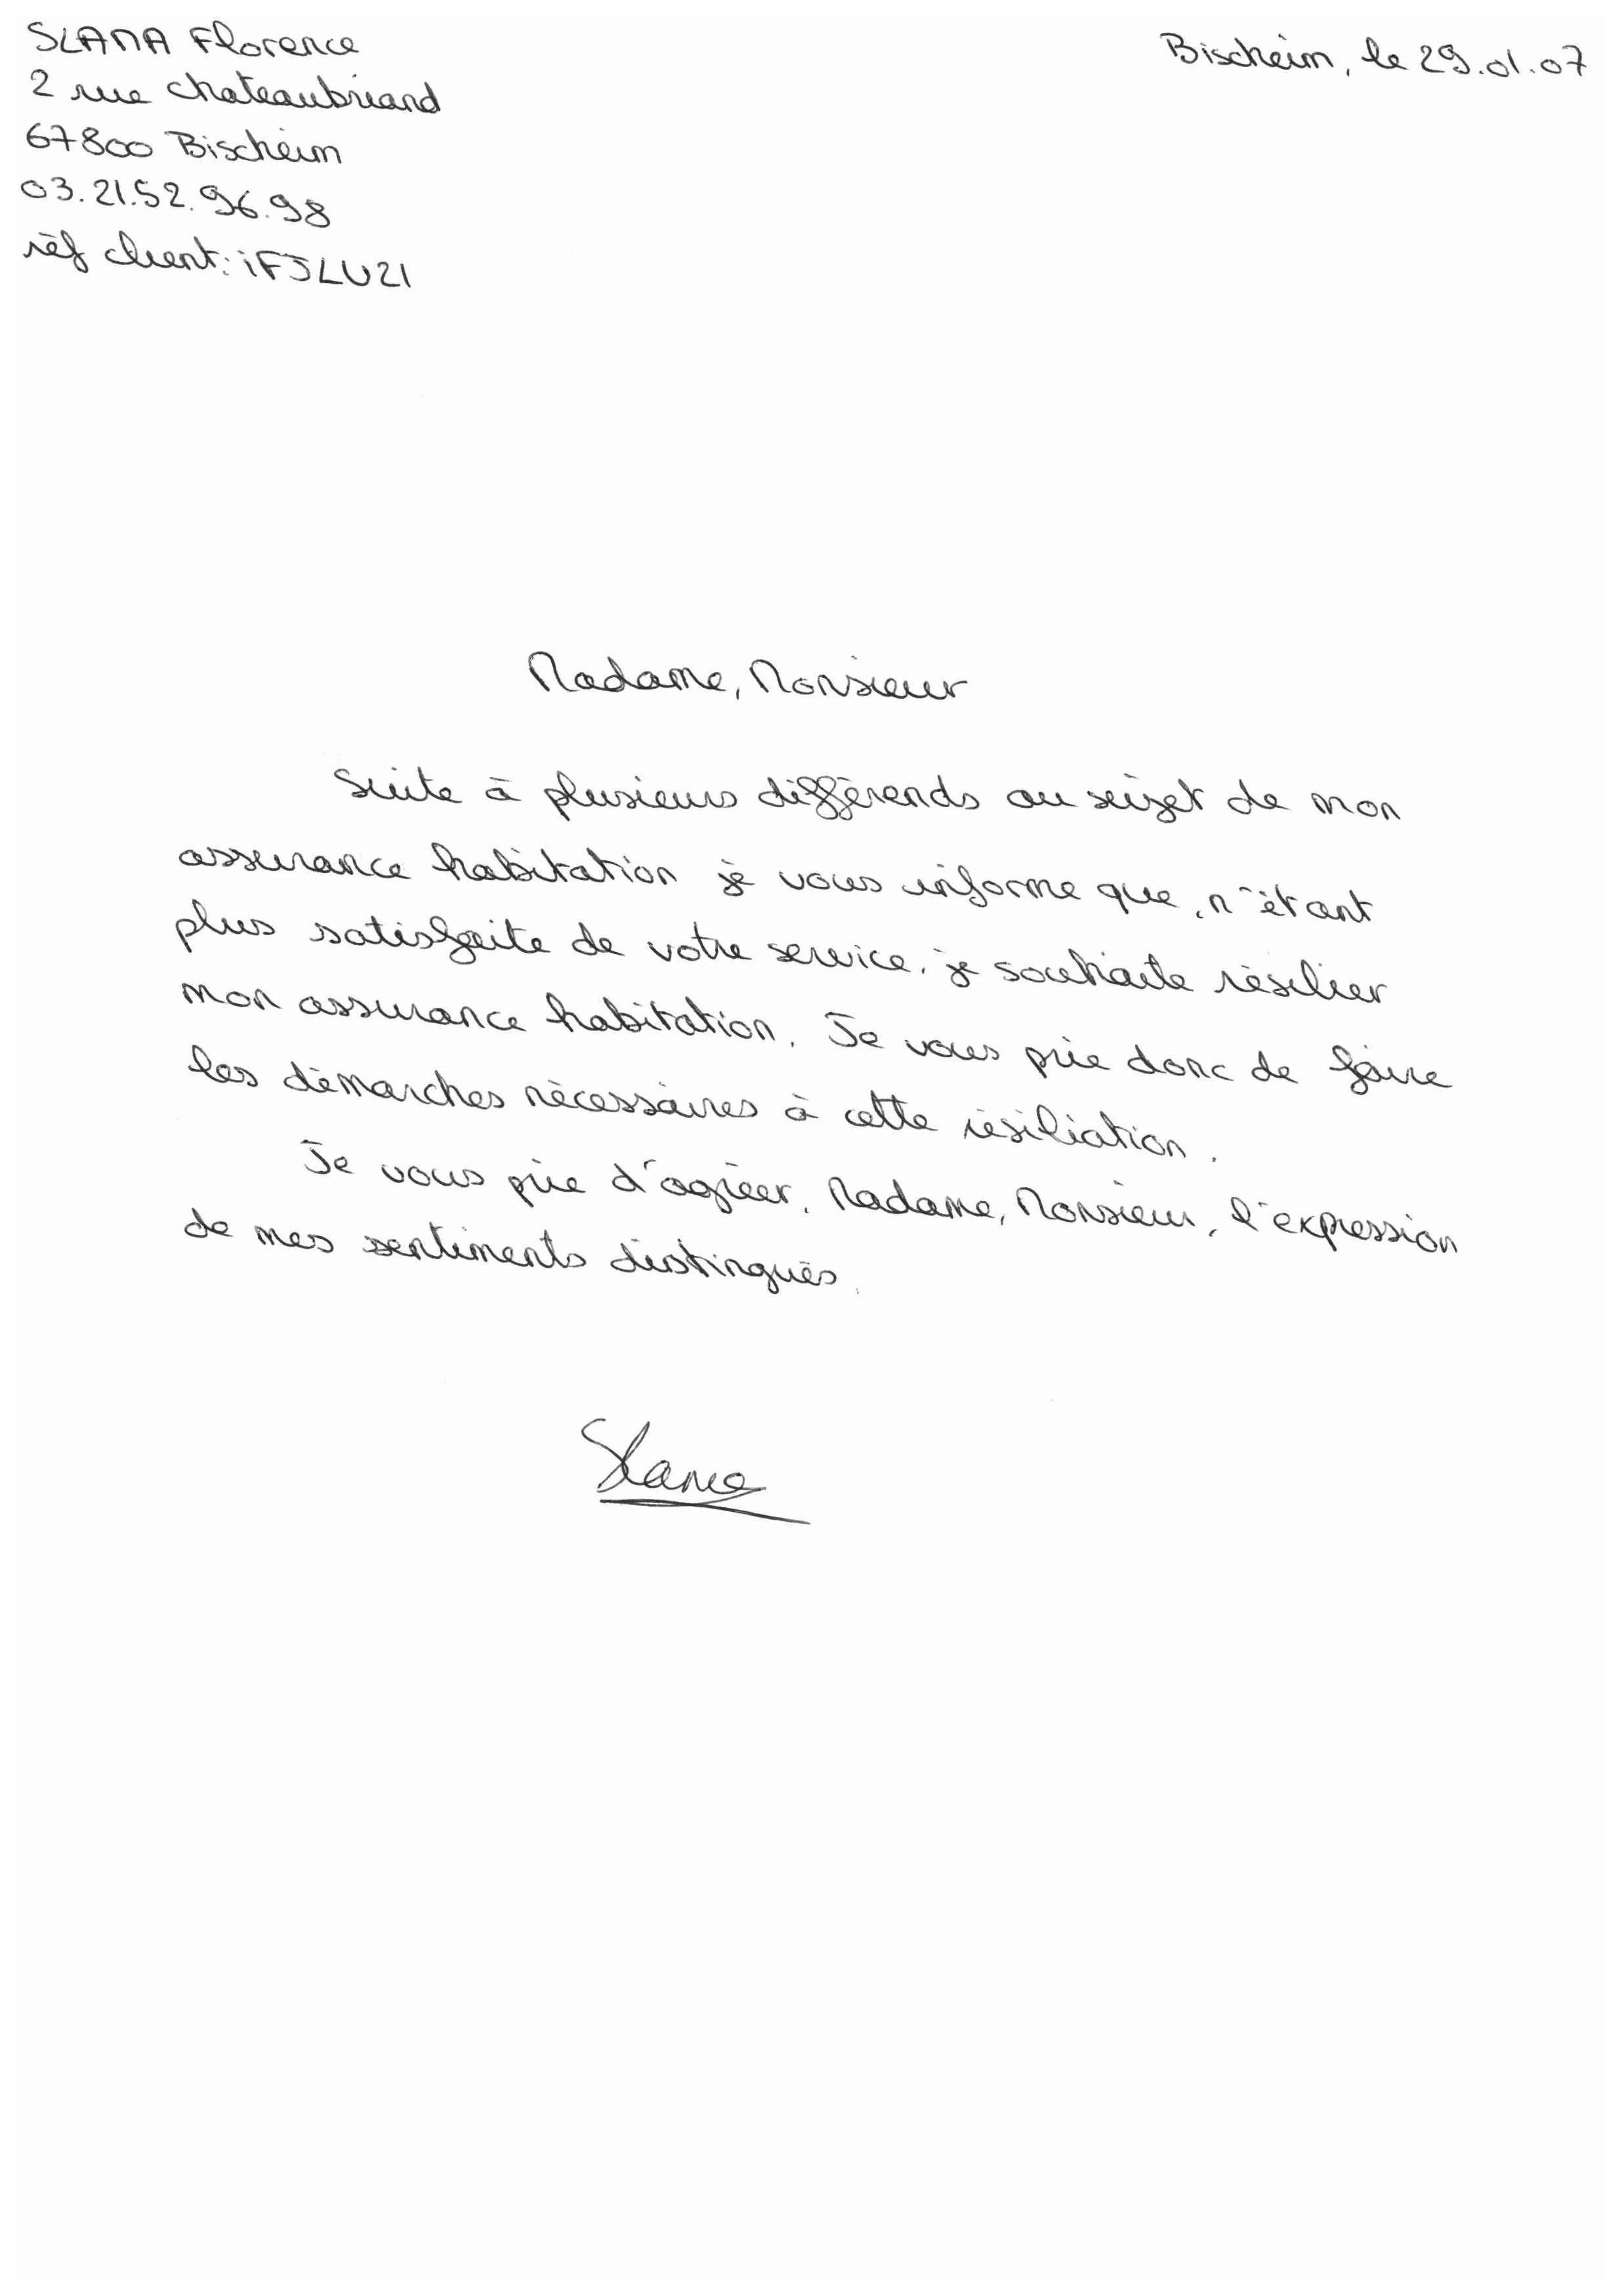 SLAMA Florence
Bischeim, le 29.01.07
2 rue chateaubriand
67800 Bischeim
03.21.52.96.98
réf client: iFJLU21
Madame, Monsieur
Suite à plusieurs différends au sujet de mon
assurance habitation je vous informe que, n'étant
plus satisfaite de votre service, je souhaite résilier
mon assurance habitation. Je vous prie donc de faire
les démarches nécessaires à cette résiliation.
Je vous prie d'agréer, Madame, Monsieur, l'expression
de mes sentiments distingués.
Slama